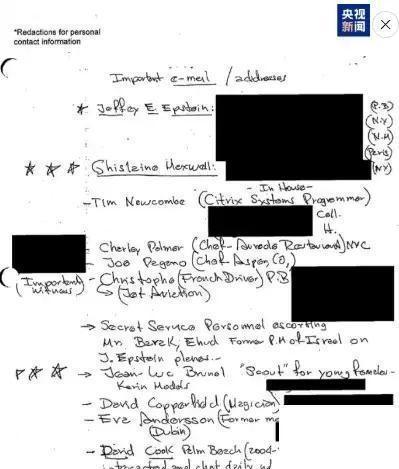 *Redactions for personal
contact information
央视
新闻
Important e-mail / addresses
★ Jeffrey E. Epstein:
(P.B)
(N.Y)
(N.M)
(Paris)
★ ★ ★ Ghislaine Maxwell:
(NY)
- In House -
- Tim Newcombe (Citrix Systems Programmer)
Cell.
H.
- Charley Palmer (Chef- Aureole Restaurant) NYC
- Joe Pagano (Chef Aspen, CO,)
(Important witness) - Christophe (French Driver) P.B
↳ (Jet Aviction)
→ Secret Service Personnel escorting
Mr. Barak, Ehud Former P.M of Israel on
J. Epstein planes.-
★ ★ → Jean-Luc Brunel "Scout" for young females-
Karin Models
- David Copperfield (Magician)
- Eva Andersson (Former
(Dubin)
- David Cook Palm Beach (2004-
interacted and chat daily